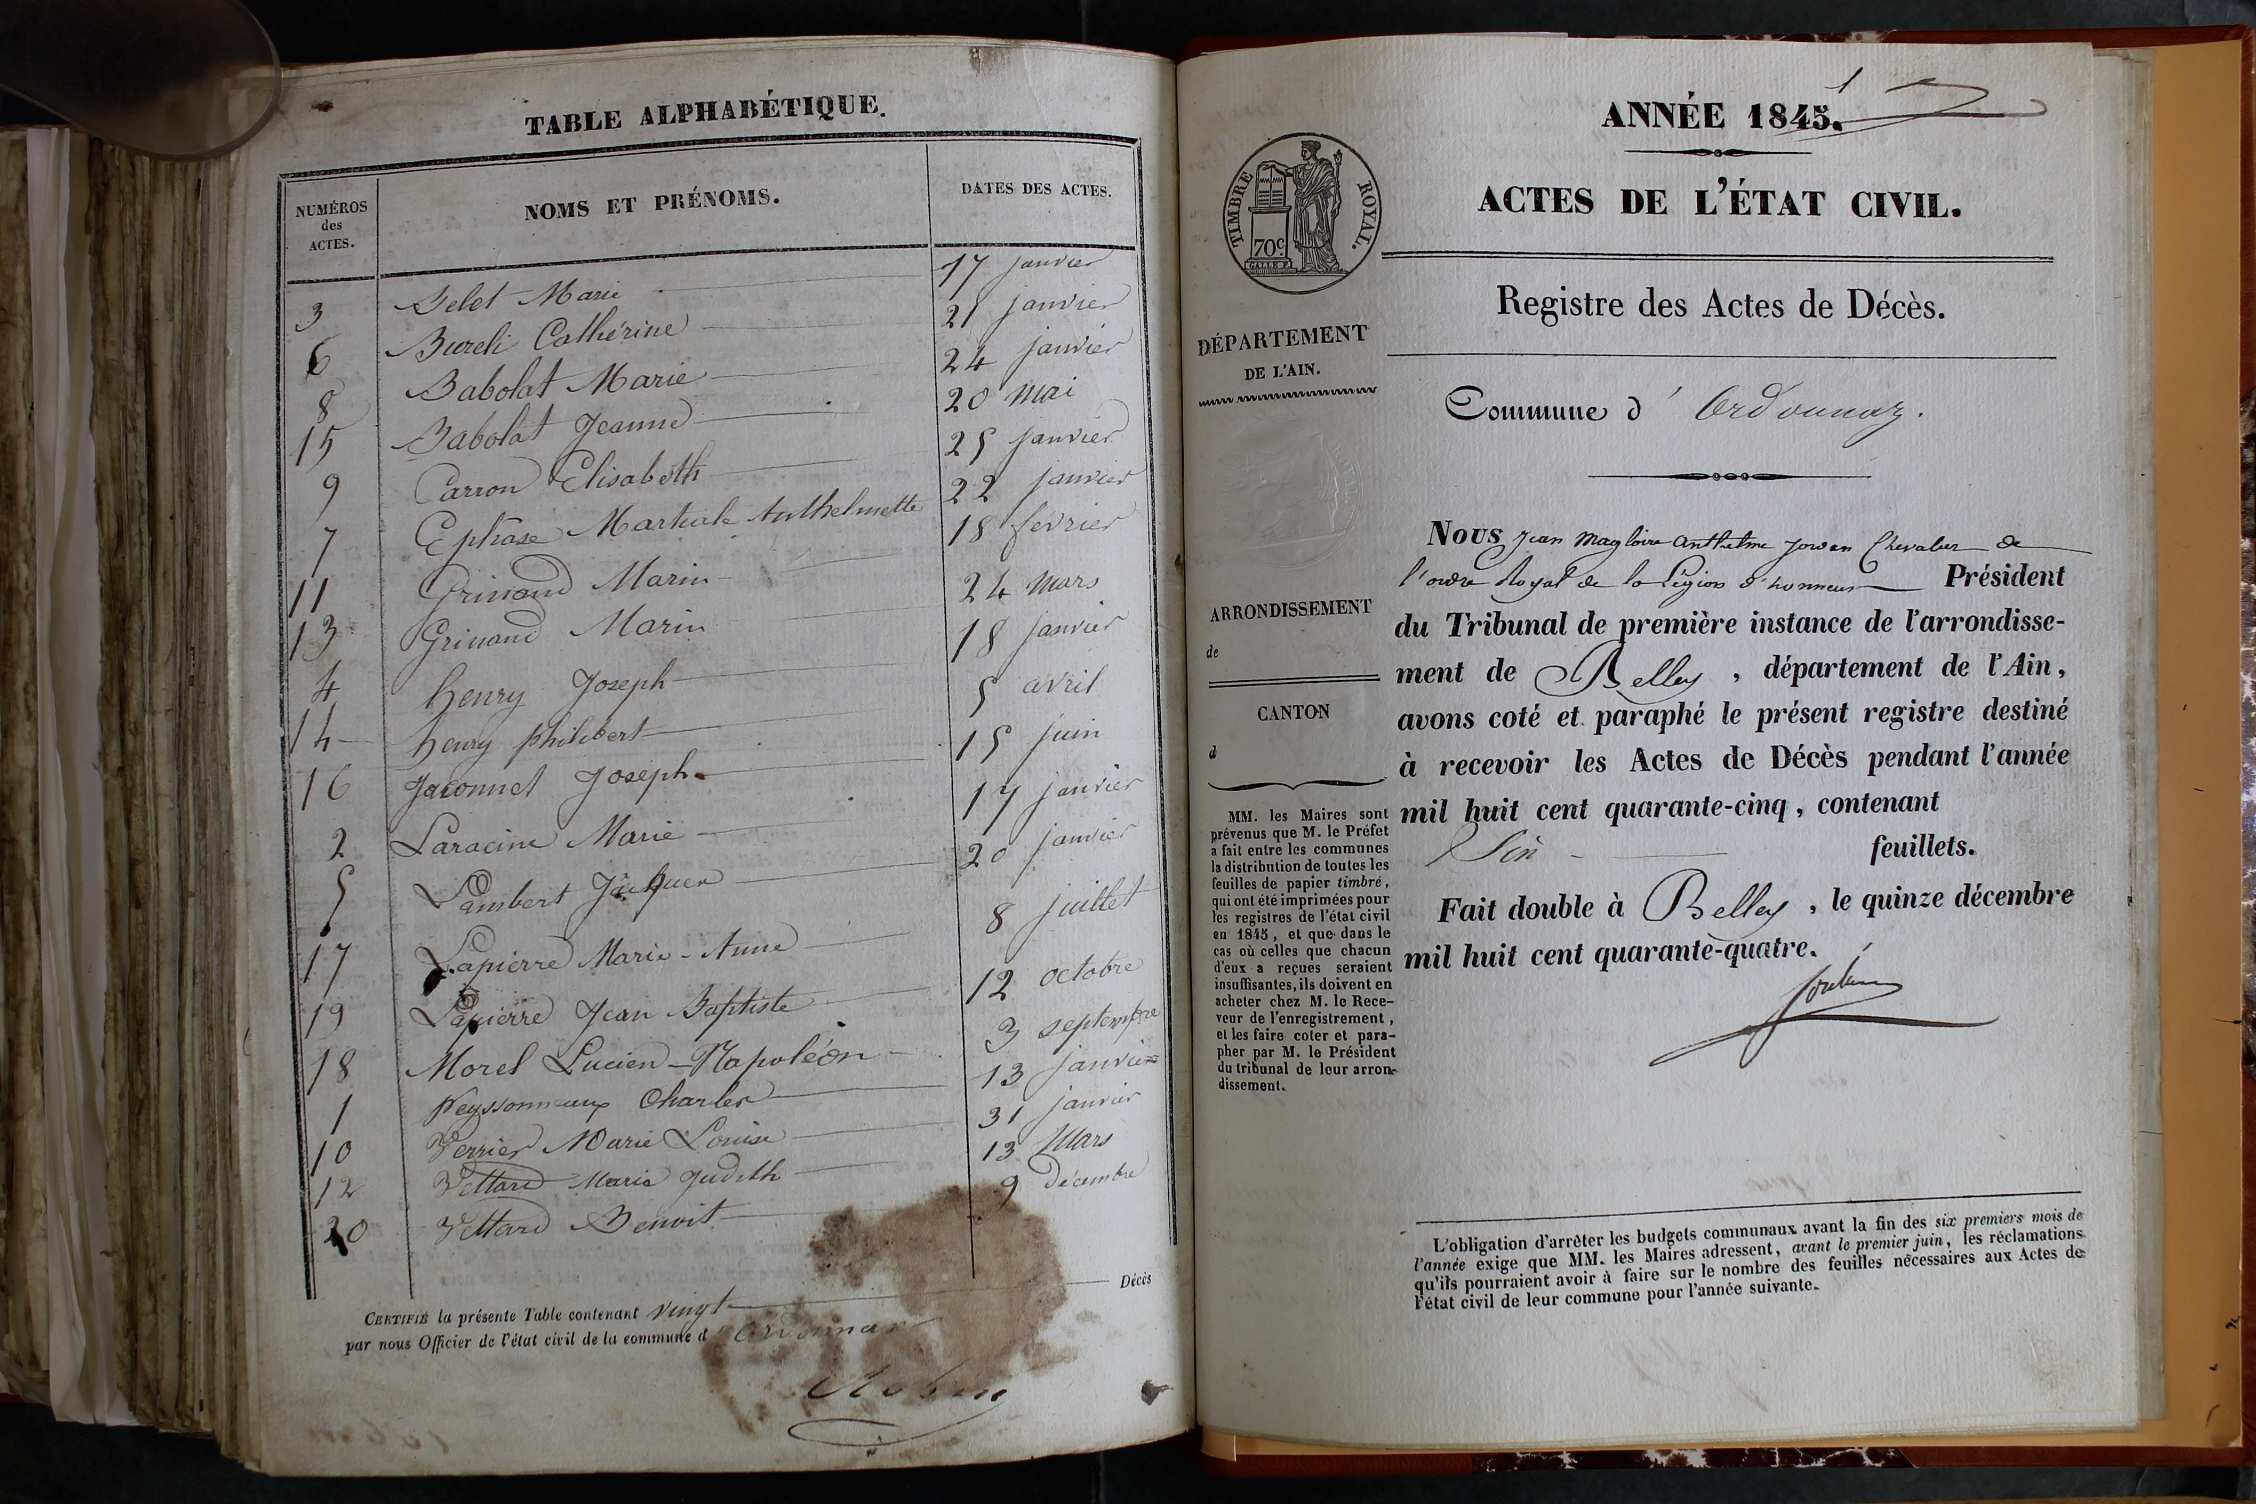 TABLE ALPHABÉTIQUE.
NUMÉROS des ACTES. NOMS ET PRÉNOMS. DATES DES ACTES.
3 Marie 17 janvier
6 Catherine 21 janvier
8 Babolat Marie 24 janvier
15 Babolat Jeanne 20 mai
9 Carron Elisabeth 25 janvier
7 Martiale Anthelmette 22 janvier
11 Marin 18 février
13 Marin 24 mars
4 henry Joseph 18 janvier
14 henry philibert 5 avril
16 Jaconnet Joseph 15 juin
2 Laracine Marie 17 janvier
5 Lambert Jacques 20 janvier
17 Lapierre Marie-Anne 8 juillet
19 Lapierre Jean Baptiste 12 octobre
18 Morel Lucien-Napoléon 3 septembre
1 peyssonneaux Charles 13 janvier
10 Verrier Marie Louise 31 janvier
12 Vettard Marie Judith 13 Mars
20 Vettard Benoit 9 Décembre
CERTIFIÉ la présente Table contenant vingt Décès
par nous Officier de l'état civil de la commune d'ordonnaz
1
ANNÉE 1845.
TIMBRE ROYAL.
70c
ACTES DE L'ÉTAT CIVIL.
Registre des Actes de Décès.
DÉPARTEMENT
DE L'AIN.
Commune d'Ordonnaz.
Nous Jean Magloire Anthelme Chevalier de
l'ordre Royal de la Légion d'honneur Président
du Tribunal de première instance de l'arrondisse-
ment de Belley, département de l'Ain,
avons coté et paraphé le présent registre destiné
à recevoir les Actes de Décès pendant l'année
mil huit cent quarante-cinq, contenant
Six feuillets.
Fait double à Belley, le quinze décembre
mil huit cent quarante-quatre.
ARRONDISSEMENT
de
CANTON
d
MM. les Maires sont
prévenus que M. le Préfet
a fait entre les communes
la distribution de toutes les
feuilles de papier timbré,
qui ont été imprimées pour
les registres de l'état civil
en 1845, et que dans le
cas où celles que chacun
d'eux a reçues seraient
insuffisantes, ils doivent en
acheter chez M. le Rece-
veur de l'enregistrement,
et les faire coter et para-
pher par M. le Président
du tribunal de leur arron-
dissement.
L'obligation d'arrêter les budgets communaux avant la fin des six premiers mois de
l'année exige que MM. les Maires adressent, avant le premier juin, les réclamations
qu'ils pourraient avoir à faire sur le nombre des feuilles nécessaires aux Actes de
l'état civil de leur commune pour l'année suivante.